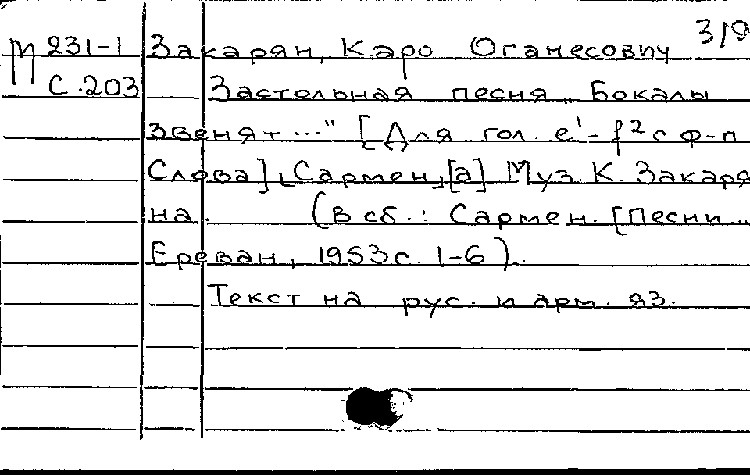 М 231-1 Закарян, Каро Оганесович 319
С. 203 Застольная песня „Бокалы
звенят..." [Для гол. e¹-f² с ф-п
Слова] Сармен[а] Муз. К. Закаря
на. (В сб.: Сармен. [Песни...
Ереван, 1953 с. 1-6).
Текст на рус. и арм. яз.